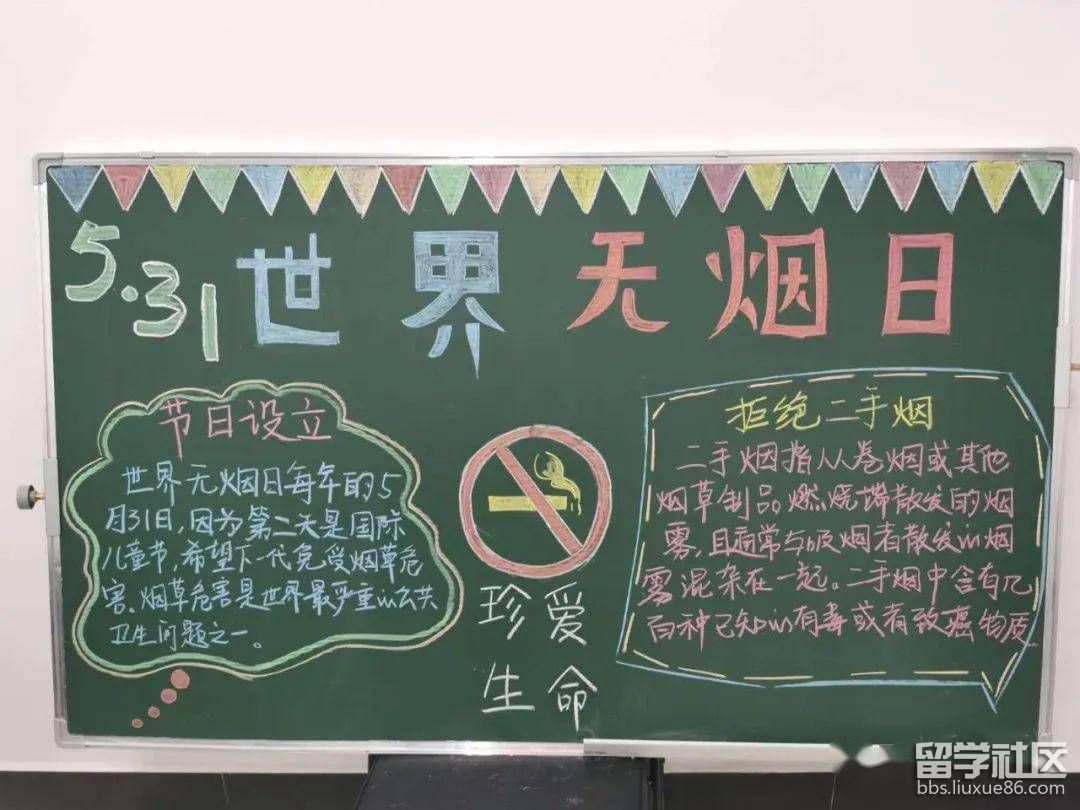 5.31世界无烟日
节日设立
世界无烟日每年的5
月31日,因为第二天是国际
儿童节,希望下一代免受烟草危
害。烟草危害是世界最严重的公共
卫生问题之一。
珍爱
生命
拒绝二手烟
二手烟指从卷烟或其他
烟草制品燃烧端散发的烟
雾,且通常与吸烟者散发的烟
雾混杂在一起。二手烟中含有几
百种已知的有毒或有致癌物质
留学社区
bbs.liuxue86.com